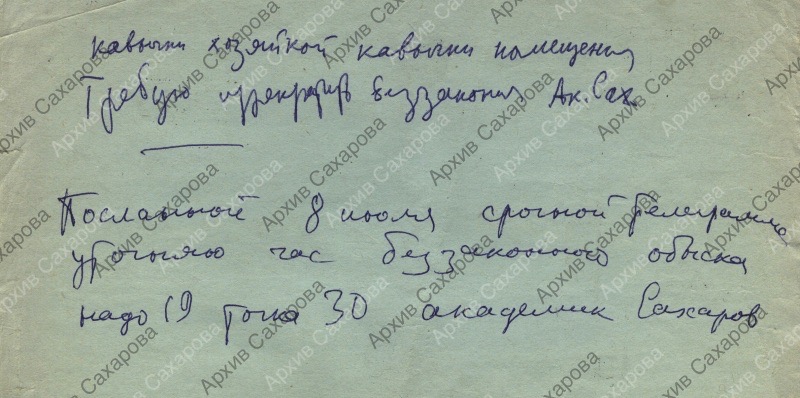 кавычки хозяйкой кавычки помещения
Требую прекратить беззакония Ак. Сах.
Посланной 8 июля срочной телеграмме
уточняю час беззаконного обыска
надо 19 точка 30 академик Сахаров